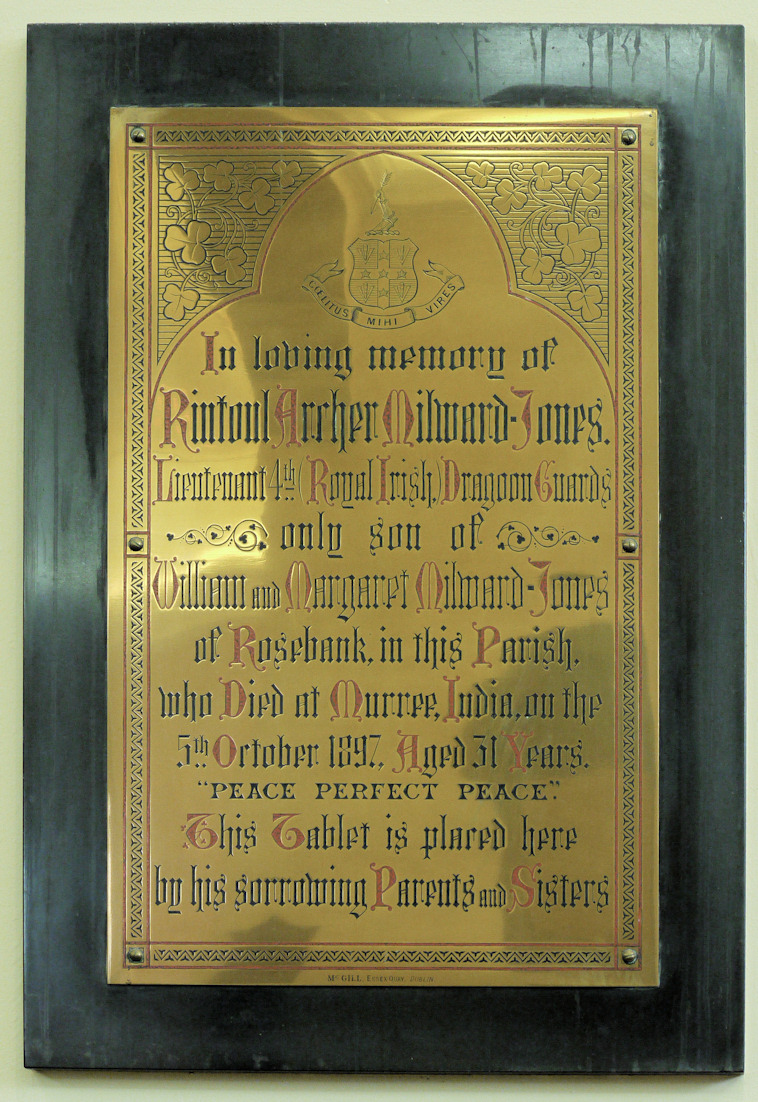 CŒLITUS MIHI VIRES
In loving memory of
Rintoul Archer Milward-Jones.
Lieutenant 4th (Royal Irish) Dragoon Guards
only son of
William and Margaret Milward-Jones
of Rosebank, in this Parish,
who Died at Murree, India, on the
5th October 1897, Aged 31 Years.
"PEACE PERFECT PEACE".
This Tablet is placed here
by his sorrowing Parents and Sisters
McGILL ESSEX QUAY. DUBLIN